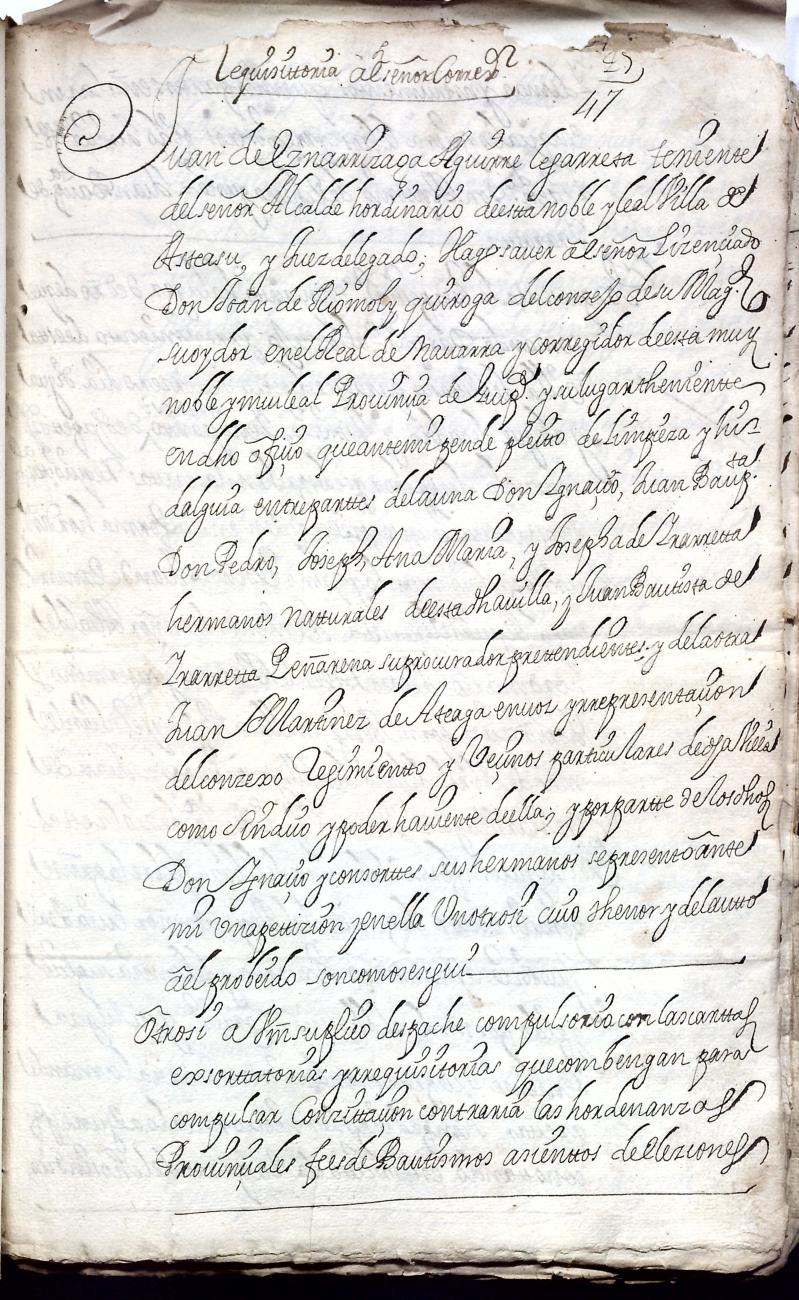 Requisittoria al señor Correxor
47
47
Juan de Yznarrizaga Aguirre legarreta teniente
del señor Alcalde hordinario de esta noble y leal Villa de
Asteasu, y Juez delegado; Hago sauer al señor Lizenciado
Don Joan de Riomol y quiroga del consejo de su Magd
su oydor en el Real de Nauarra y corregidor de esta muy
noble y mui leal Prouinçia de Guipca. y su lugartheniente
en dho ofiçio que ante mi pende pleito de limpieza y hi-
dalguia entre parttes de la una Don Ygnaçio, Juan Baupta.
Don Pedro, Joseph, Ana Maria, y Josepha de Yrarretta
hermanos natturales de esta dha uilla, y Juan Bautista de
Yrarretta Peñarena su procurador pretendientes y de la otra
Juan Martinez de Ateaga en uoz y rrepresentaçion
del conzexo Regimientto y Veçinos particulares de dha Villa
como Sindico y poder hauiente de ella; y por partte de los dhos
Don Ygnaçio y consorttes sus hermanos se presento ante
mi Una pettizion y en ella Un otrosi cuio thenor y del autto
a el probeido son como se sigue
Otrosi a Vm suplico despache compulsorio con las carttas
exsorttatorias y rrequisitorias que combengan para
compulsar Conzittaçion contraria las hordenanzas
Prouinçiales fees de Bautismos asienttos de Eleziones